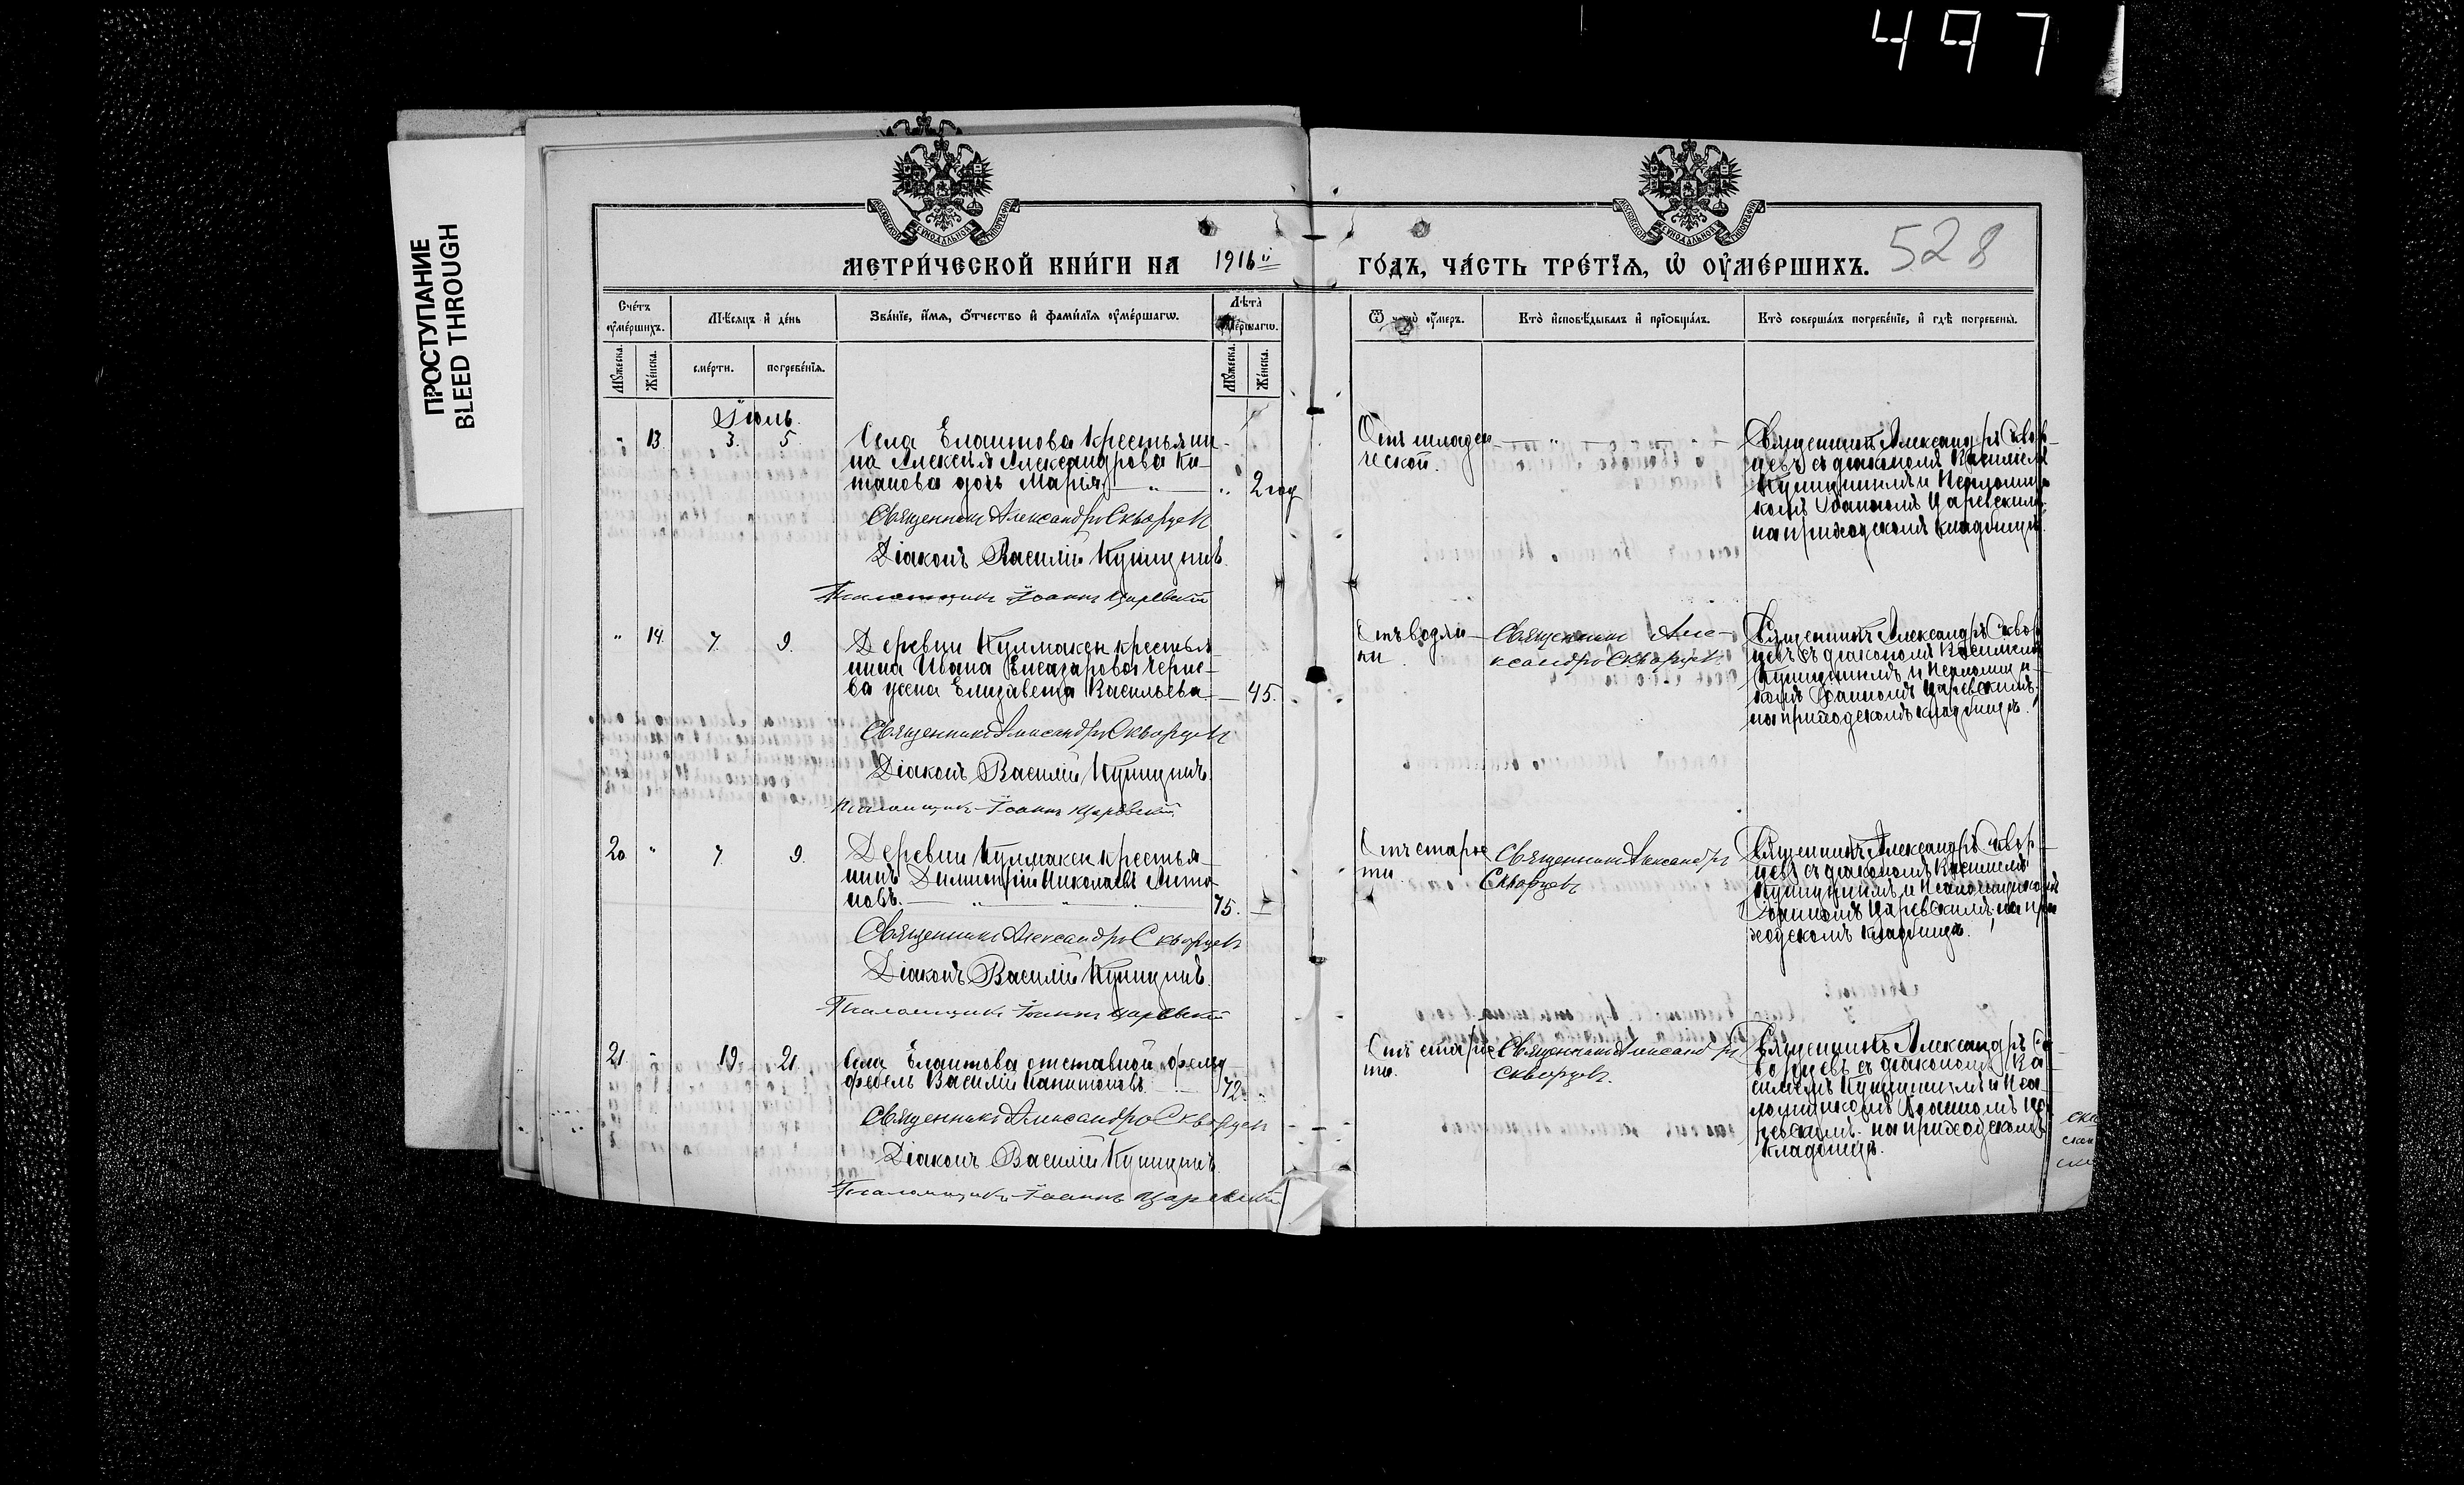 497
ПРОСТУПАНИЕ
BLEED THROUGH
МЕТРИ́ЧЕСКОЙ КНИ́ГИ НА 1916й ГО́ДЪ, ЧА́СТЬ ТРЕ́ТЇѦ, Ѡ҆ ОУ҆МЕ́РШИХЪ. 528
Сче́тъ оу҆ме́ршихъ.
Мѣ́сяцъ и҆ де́нь
Зва́нїе, и҆́мѧ, ѻ҆́тчество и҆ фами́лїѧ оу҆ме́ршагѡ.
Лѣ́та оу҆ме́ршагѡ.
Ѿ чегѡ̀ оу҆́меръ.
Кто̀ и҆сповѣ́дывалъ и҆ прїѡбща́лъ.
Кто̀ соверша́лъ погребе́нїе, и҆ гдѣ̀ погребены̀.
Мꙋ́жеска.
Же́нска.
сме́рти.
погребе́нїѧ.
Мꙋ́жеска.
Же́нска.
Іюль.
" 13. 3. 5.
Села Елаштова крестьяни-
на Алексѣя Александрова Ка-
питанова дочь Марія " 2 год
Священникъ Александръ Скворцевъ
Діаконъ Василій Купицынъ.
Псаломщикъ Іоаннъ Царевскій
Отъ младен
ческой.
Священникъ Александръ Сквор
цевъ съ діакономъ Василіемъ
и Псаломщи
комъ Іоанномъ Царевскимъ
на приходскомъ кладбищѣ.
" 14. 7. 9.
Деревни Кулмакен крестья
нина Ивана Елеазарова Черне-
ва жена Елизавета Васильева. — 45.
Священникъ Александръ Скворцевъ
Діаконъ Василій
Псаломщикъ Іоаннъ Царевскій.
Отъ водян-
ки.
Священникъ Але-
ксандръ Скворцевъ.
Священникъ Александръ Сквор
цевъ съ діакономъ Василіемъ
и Псаломщи-
комъ Іоанномъ Царевскимъ.
на приходскомъ кладбищѣ.
20. " 7. 9.
Деревни Кулмакен крестья-
нинъ Димитрій Николаевъ Анто-
новъ. 75. —
Священникъ Александръ Скворцевъ
Діаконъ Василій
Псаломщикъ Іоаннъ Царевскій
Отъ старос
ти.
Священникъ Александръ
Скворцевъ
Священникъ Александръ Сквор-
цевъ съ діакономъ Василіемъ
и Псаломщикомъ
Іоанномъ Царевскимъ, на при
ходскомъ кладбищѣ.
21. " 19. 21.
Села Елаштова отставной фельд-
фебель Василій Капитоновъ. 72. "
Священникъ Александръ Скворцевъ
Діаконъ Василій
Псаломщикъ Іоаннъ Царевскій
Отъ старос
ти.
Священникъ Александръ
Скворцевъ.
Священникъ Александръ Ск
ворцевъ съ діакономъ Ва
силіемъ и Пса-
ломщикомъ Іоанномъ Ца
ревскимъ. на приходскомъ
кладбищѣ.